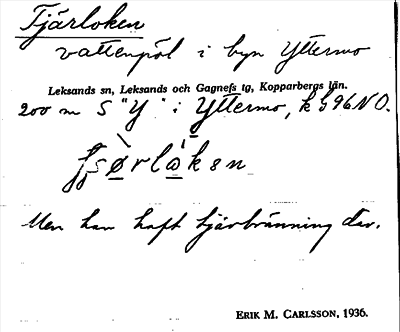 Tjärloken
vattenpöl i byn Yttermo
Leksands sn, Leksands och Gagnefs tg, Kopparbergs län.
200 m S "Y" i Yttermo, k 596 NO.
Men har haft tjärbränning där.
ERIK M. CARLSSON, 1936.